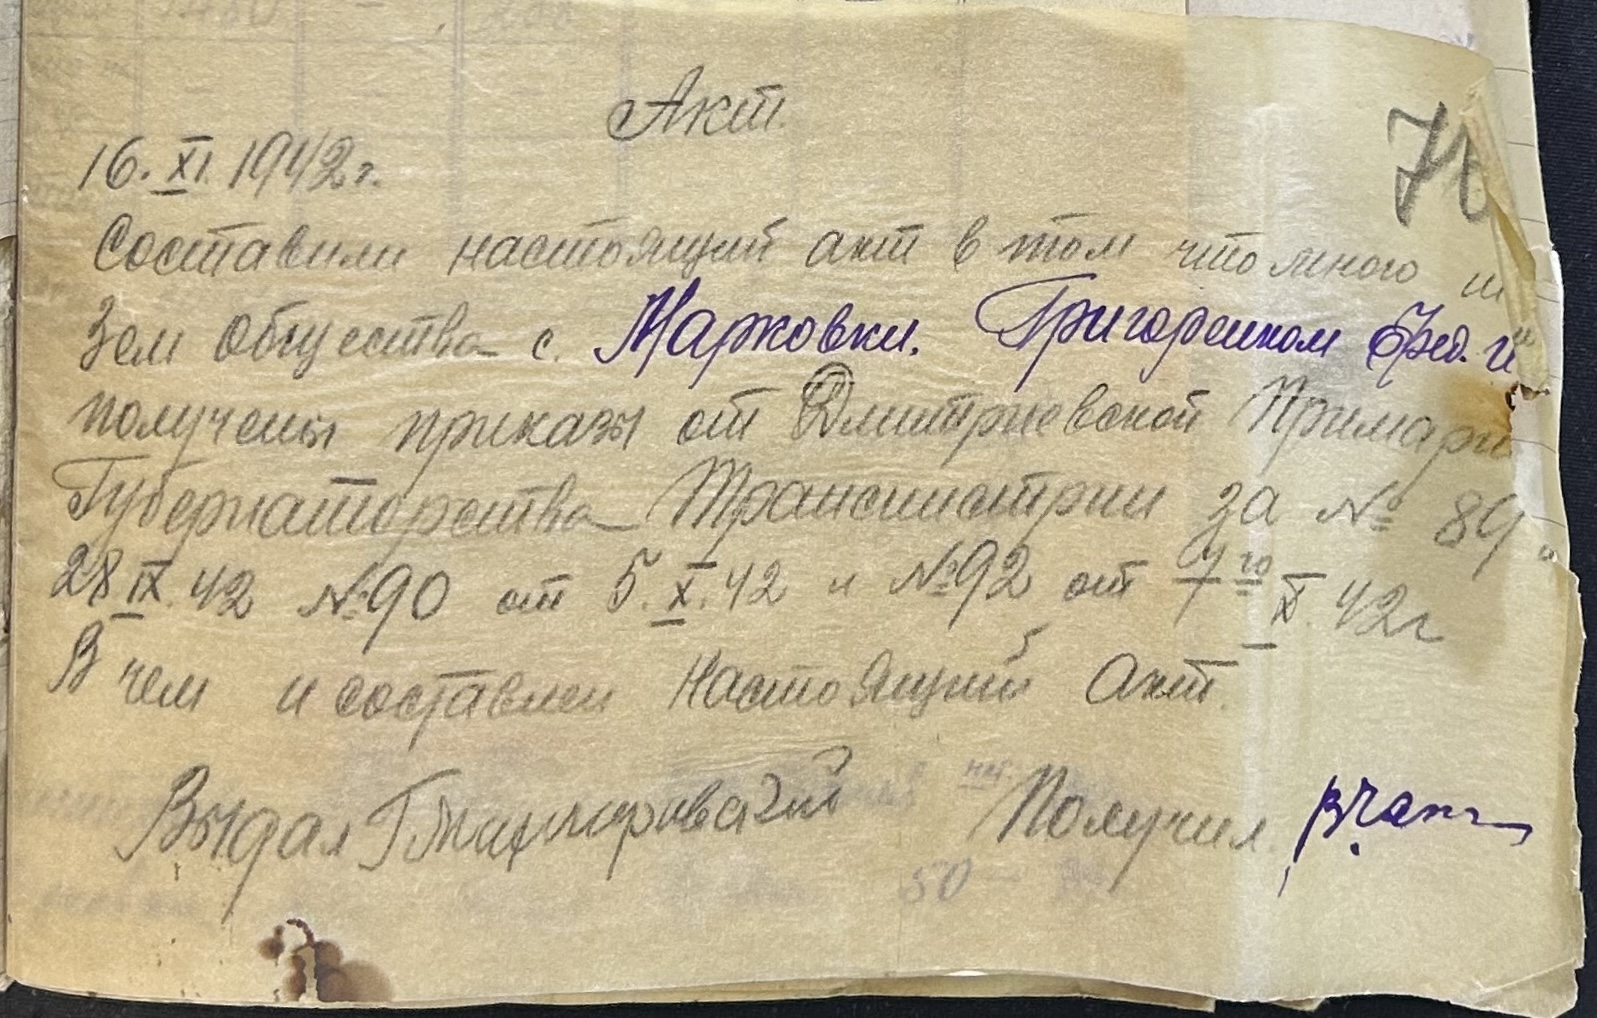 Акт.
70
16. XI. 1942 г.
Составили настоящий акт в том что мною
Зем общества с. Марковки. Григоренком Фед. И
получены приказы от Дмитриевской Примари
Губернаторства Транснистрии за № 89
28 IX. 42 №90 от 5. X. 42 и №92 от го X. 42 г
В чем и составлен Настоящий Акт.
Выдал Получил.
50